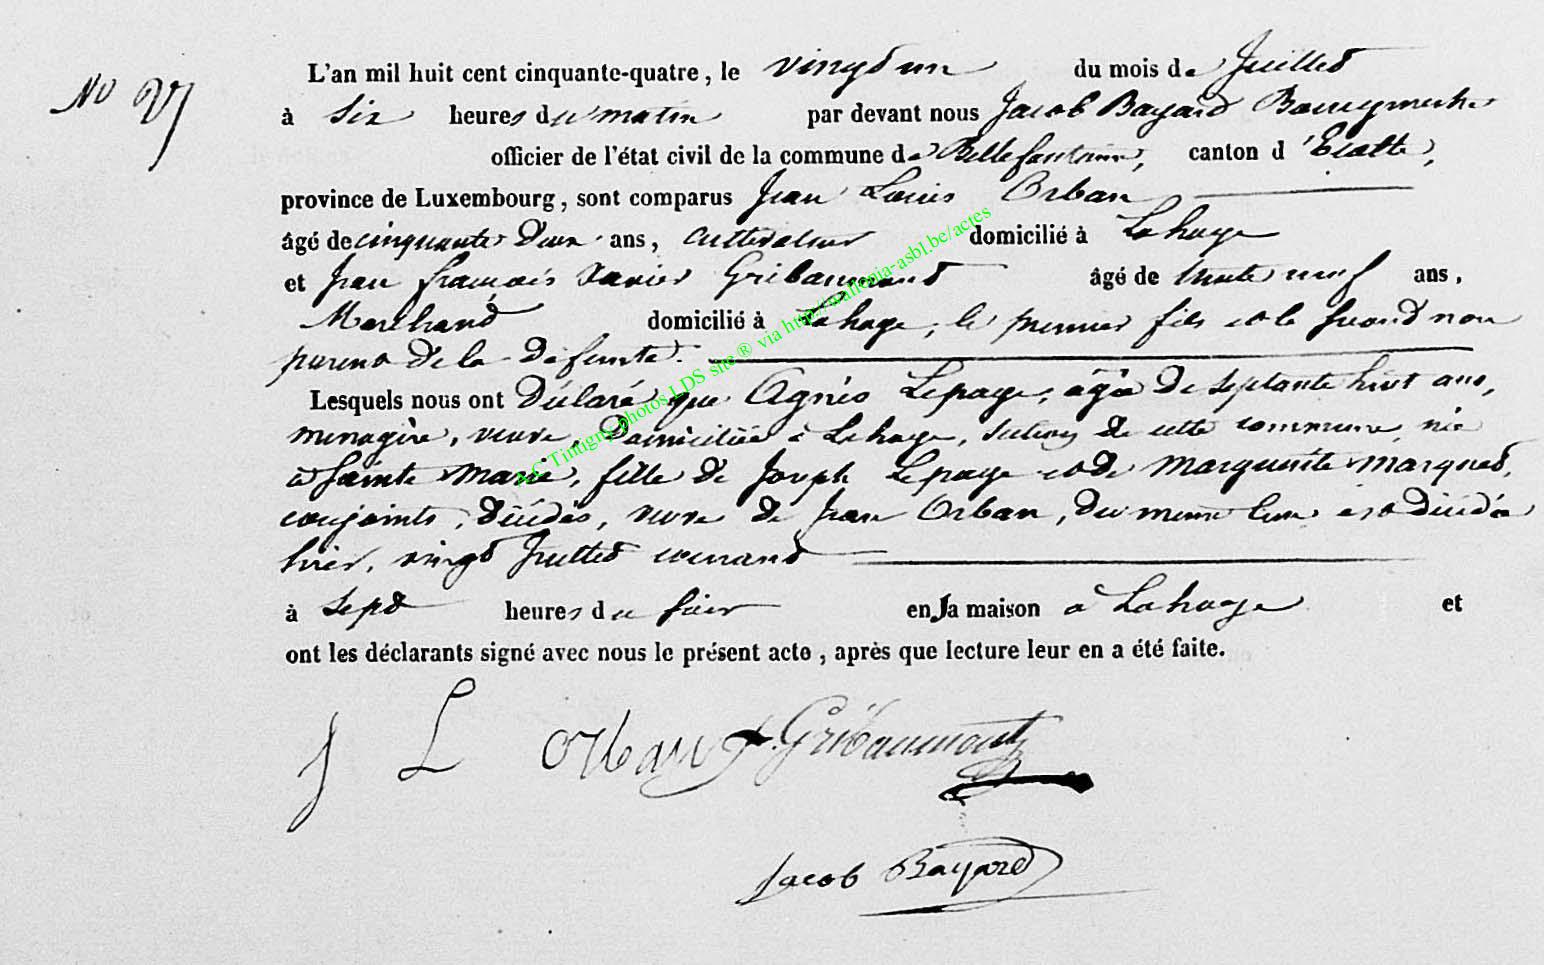 No 27
L'an mil huit cent cinquante-quatre, le vingt un du mois de Juillet
à six heures du matin par devant nous Jacob Bayard Bourgmestre
officier de l'état civil de la commune de Bellefontaine, canton d'Etalle,
province de Luxembourg, sont comparus Jean Louis Orban
âgé de cinquante deux ans, cultivateur domicilié à Lahage
et Jean François Xavier Gribaumont âgé de trente neuf ans,
Marchand domicilié à Lahage, le premier fils et le second non
parent de la défunte.
Lesquels nous ont Déclaré que Agnès Lepage, agée de septante huit ans,
menagère, veuve, Domiciliée à Lahage, section de cette commune, née
à Sainte Marie, fille de Joseph Lepage et de Marguerite Marquet,
conjoints, Décédés, veuve de Jean Orban, du meme lieu est Décédée
hier, vingt Juillet courant
à sept heures du soir en sa maison à Lahage et
ont les déclarants signé avec nous le présent acte, après que lecture leur en a été faite.
J L Orban Gribaumont
Jacob Bayard
AC Tintigny photos LDS site ® via http://wallonia-asbl.be/actes